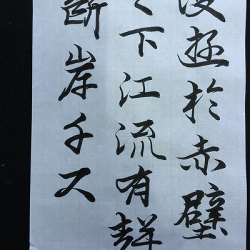 復遊於赤壁
之下江流有聲
断岸千尺